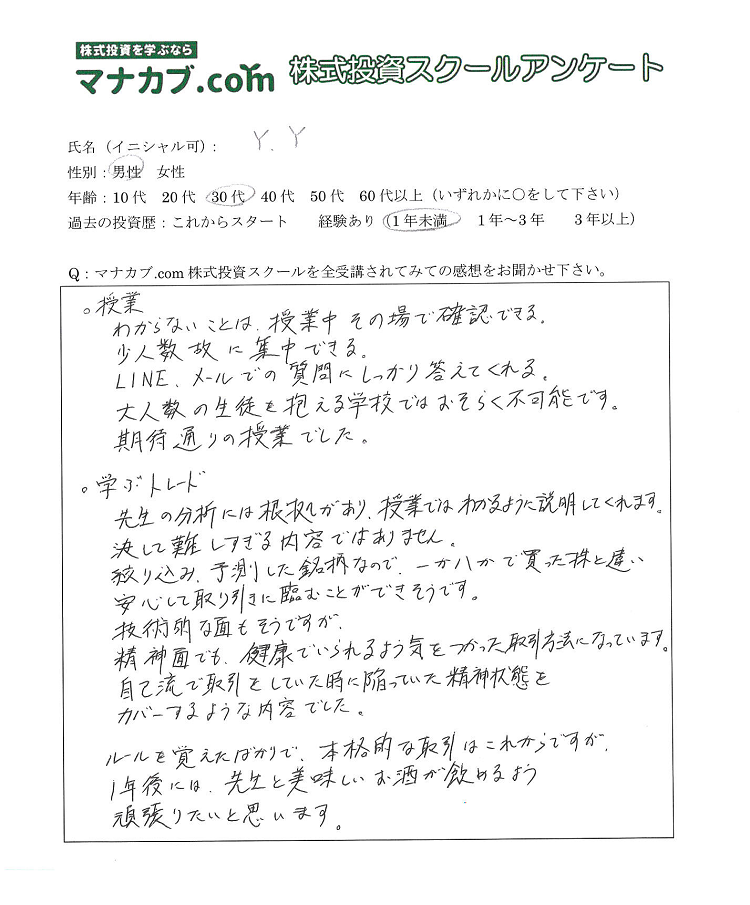 株式投資を学ぶなら
マナカブ.com 株式投資スクールアンケート
氏名（イニシャル可）： Y.Y
性別：男性 女性
年齢：10代 20代 30代 40代 50代 60代以上（いずれかに○をして下さい）
過去の投資歴：これからスタート 経験あり（1年未満 1年～3年 3年以上）
Q：マナカブ.com 株式投資スクールを全受講されてみての感想をお聞かせ下さい。
○授業
わからないことは、授業中その場で確認できる。
少人数故に集中できる。
LINE、メールでの質問にしっかり答えてくれる。
大人数の生徒を抱える学校ではおそらく不可能です。
期待通りの授業でした。
○学ぶトレード
先生の分析には根拠があり、授業ではわかるように説明してくれます。
決して難しすぎる内容ではありません。
絞り込み、予測した銘柄なので、一か八かで買った株と違い
安心して取り引きに臨むことができそうです。
技術的な面もそうですが、
精神面でも、健康でいられるよう気をつかった取引方法になっています。
自己流で取引をしていた時に陥っていた精神状態を
カバーするような内容でした。
ルールを覚えたばかりで、本格的な取引はこれからですが、
1年後には、先生と美味しいお酒が飲めるよう
頑張りたいと思います。